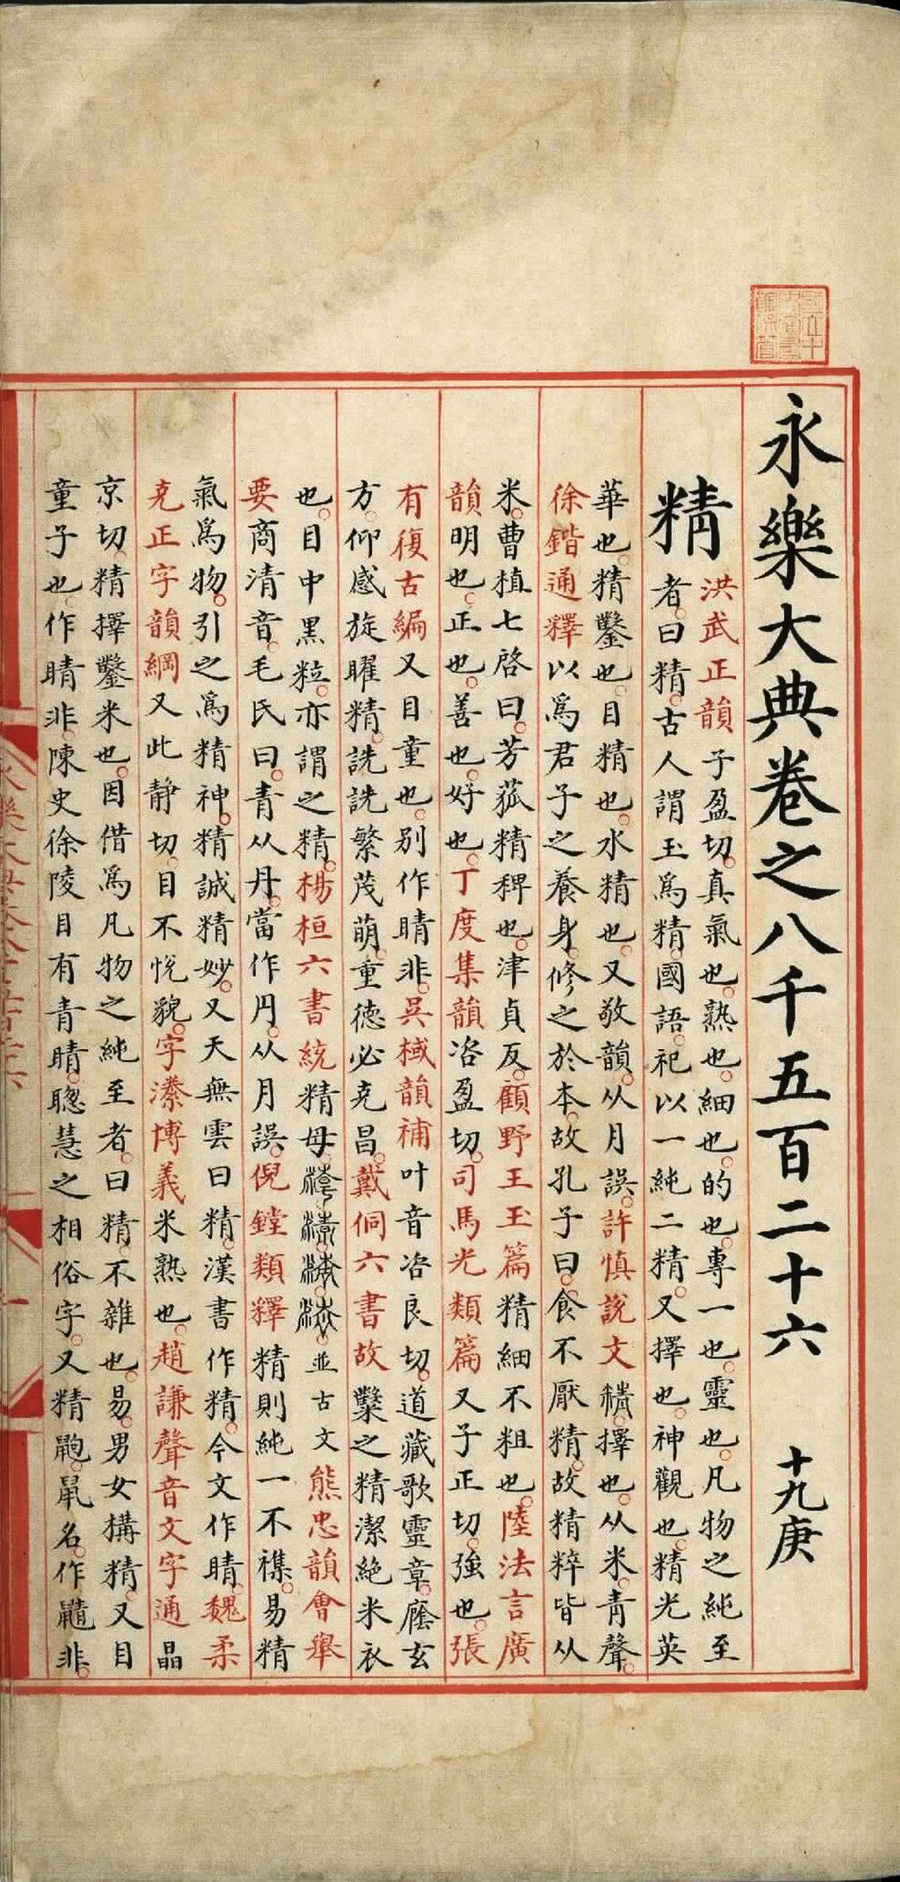 永樂大典卷之八千五百二十六 十九庚
精
洪武正韻子盈切。真氣也。熟也。細也。的也。專一也。靈也。凡物之純至
者。曰精。古人謂玉爲精。國語。祀以一純二精。又擇也。神觀也。精光英
華也。精鑿也。目精也。水精也。又敬韻。从月誤。許慎說文精。擇也。从米。青聲。
徐鍇通釋以爲君子之養身。修之於本。故孔子曰。食不厭精。故精粹皆从
米。曹植七啓曰。芳菰精稗也。津貞反。顧野王玉篇精細不粗也。陸法言廣
韻明也。正也。善也。好也。丁度集韻咨盈切。司馬光類篇又子正切。強也。張
有復古編又目童也。別作睛非。吳棫韻補叶音咨良切。道藏歌靈章。廕玄
方。仰感旋曜精。詵詵繁茂萌。重德必克昌。戴侗六書故糳之精潔絶米衣
也。目中黑粒。亦謂之精。楊桓六書統精母並古文熊忠韻會舉
要商清音。毛氏曰。青从丹。當作円。从月誤。倪鏜類釋精則純一不襍。易精
氣爲物。引之爲精神。精誠精妙。又天無雲曰精。漢書作精。今文作晴。魏柔
克正字韻綱又此静切。目不悅貌。字潫博義米熟也。趙謙聲音文字通晶
京切。精擇鑿米也。因借爲凡物之純至者。曰精。不雜也。易。男女構精。又目
童子也。作睛非。陳史徐陵目有青睛。聰慧之相俗字。又精鼩。鼠名。作鼱非。